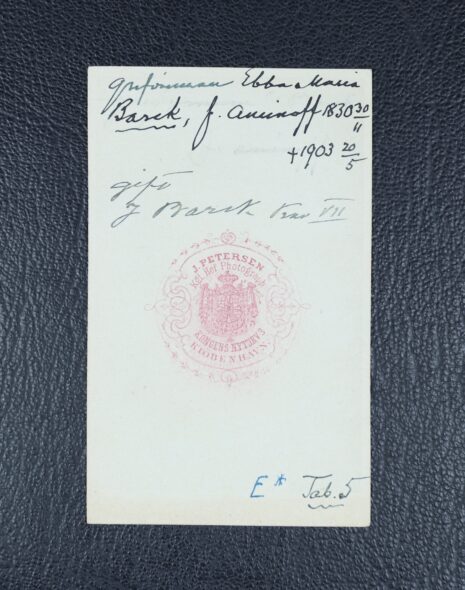 grefvinnan Ebba Maria
Barck, f. Aminoff 1830 30/11
+1903 20/5
gift
J Barck VII
J. PETERSEN
Kgl. Hof Photograph
KONGENS NYTORV 3
KIØBENHAVN.
E * Tab. 5